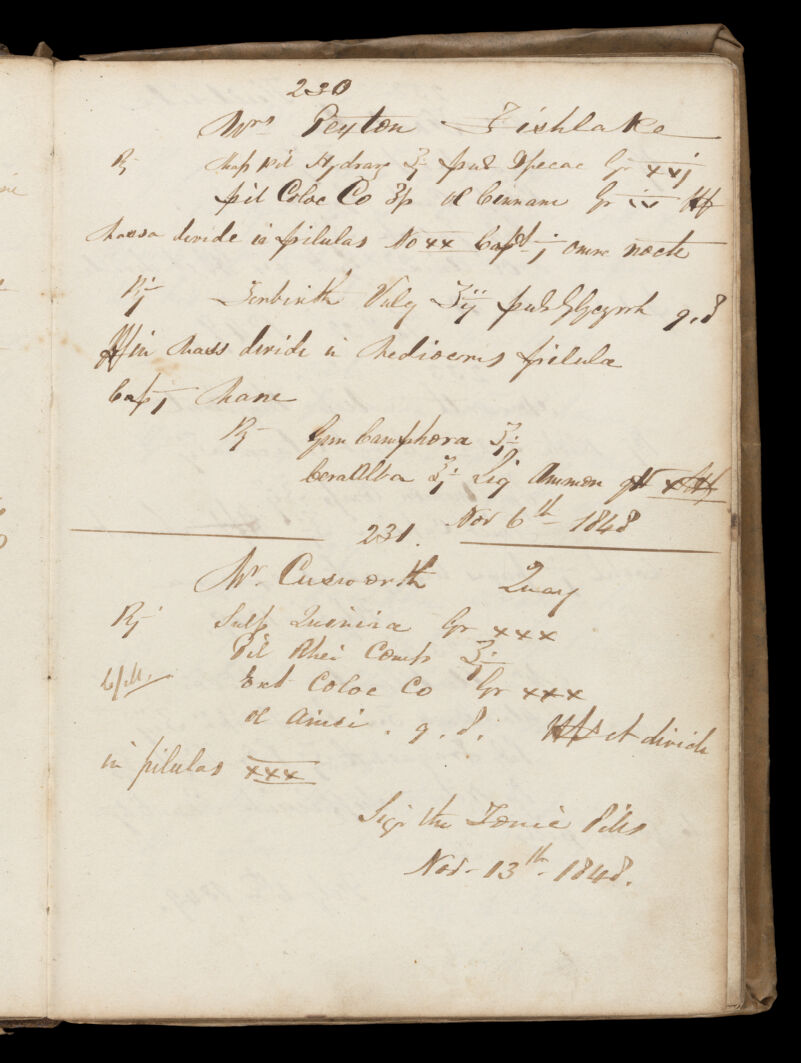 230
Mrs Peyton Fishlake
Rj Mass pil Hydrarg ʒj pul Ipecac Gr xxj
pil Coloc Co ʒp ol Cinnam Gr iv
Massa divide in pilulas No xx Capt j omne nocte
Rj Terbinth Vulg ʒij pul Glycyrrh q.s
in Mass divide in Mediocris pilula
Cap j Mane
Rj Gum Camphora ʒj
Cera Alba ʒj Liq Ammon
Nov 6th 1848
231.
Mr. Cusworth Quay
Rj Sulp Quinina Gr xxx
Pil Rhei Comp ʒj
Ext Coloc Co Gr xxx
ol Anisi . q.s. et divide
in pilulas xxx
Sigr the Tonic Pills
Nov - 13th - 1848.